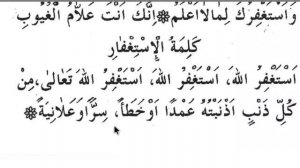 وَاَسْتَغْفِرُكَ لِمَالَا اَعْلَمُ ۞ اِنَّكَ اَنْتَ عَلَّامُ الْغُيُوْبِ
كَلِمَةُ الْاِسْتِغْفَارِ
اَسْتَغْفِرُ اللهَ، اَسْتَغْفِرُ اللهَ، اَسْتَغْفِرُ اللهَ تَعَالٰى، مِنْ
كُلِّ ذَنْبٍ اَذْنَبْتُهُ عَمْدًا اَوْخَطَأً، سِرًّا وَعَلَانِيَةً ۞